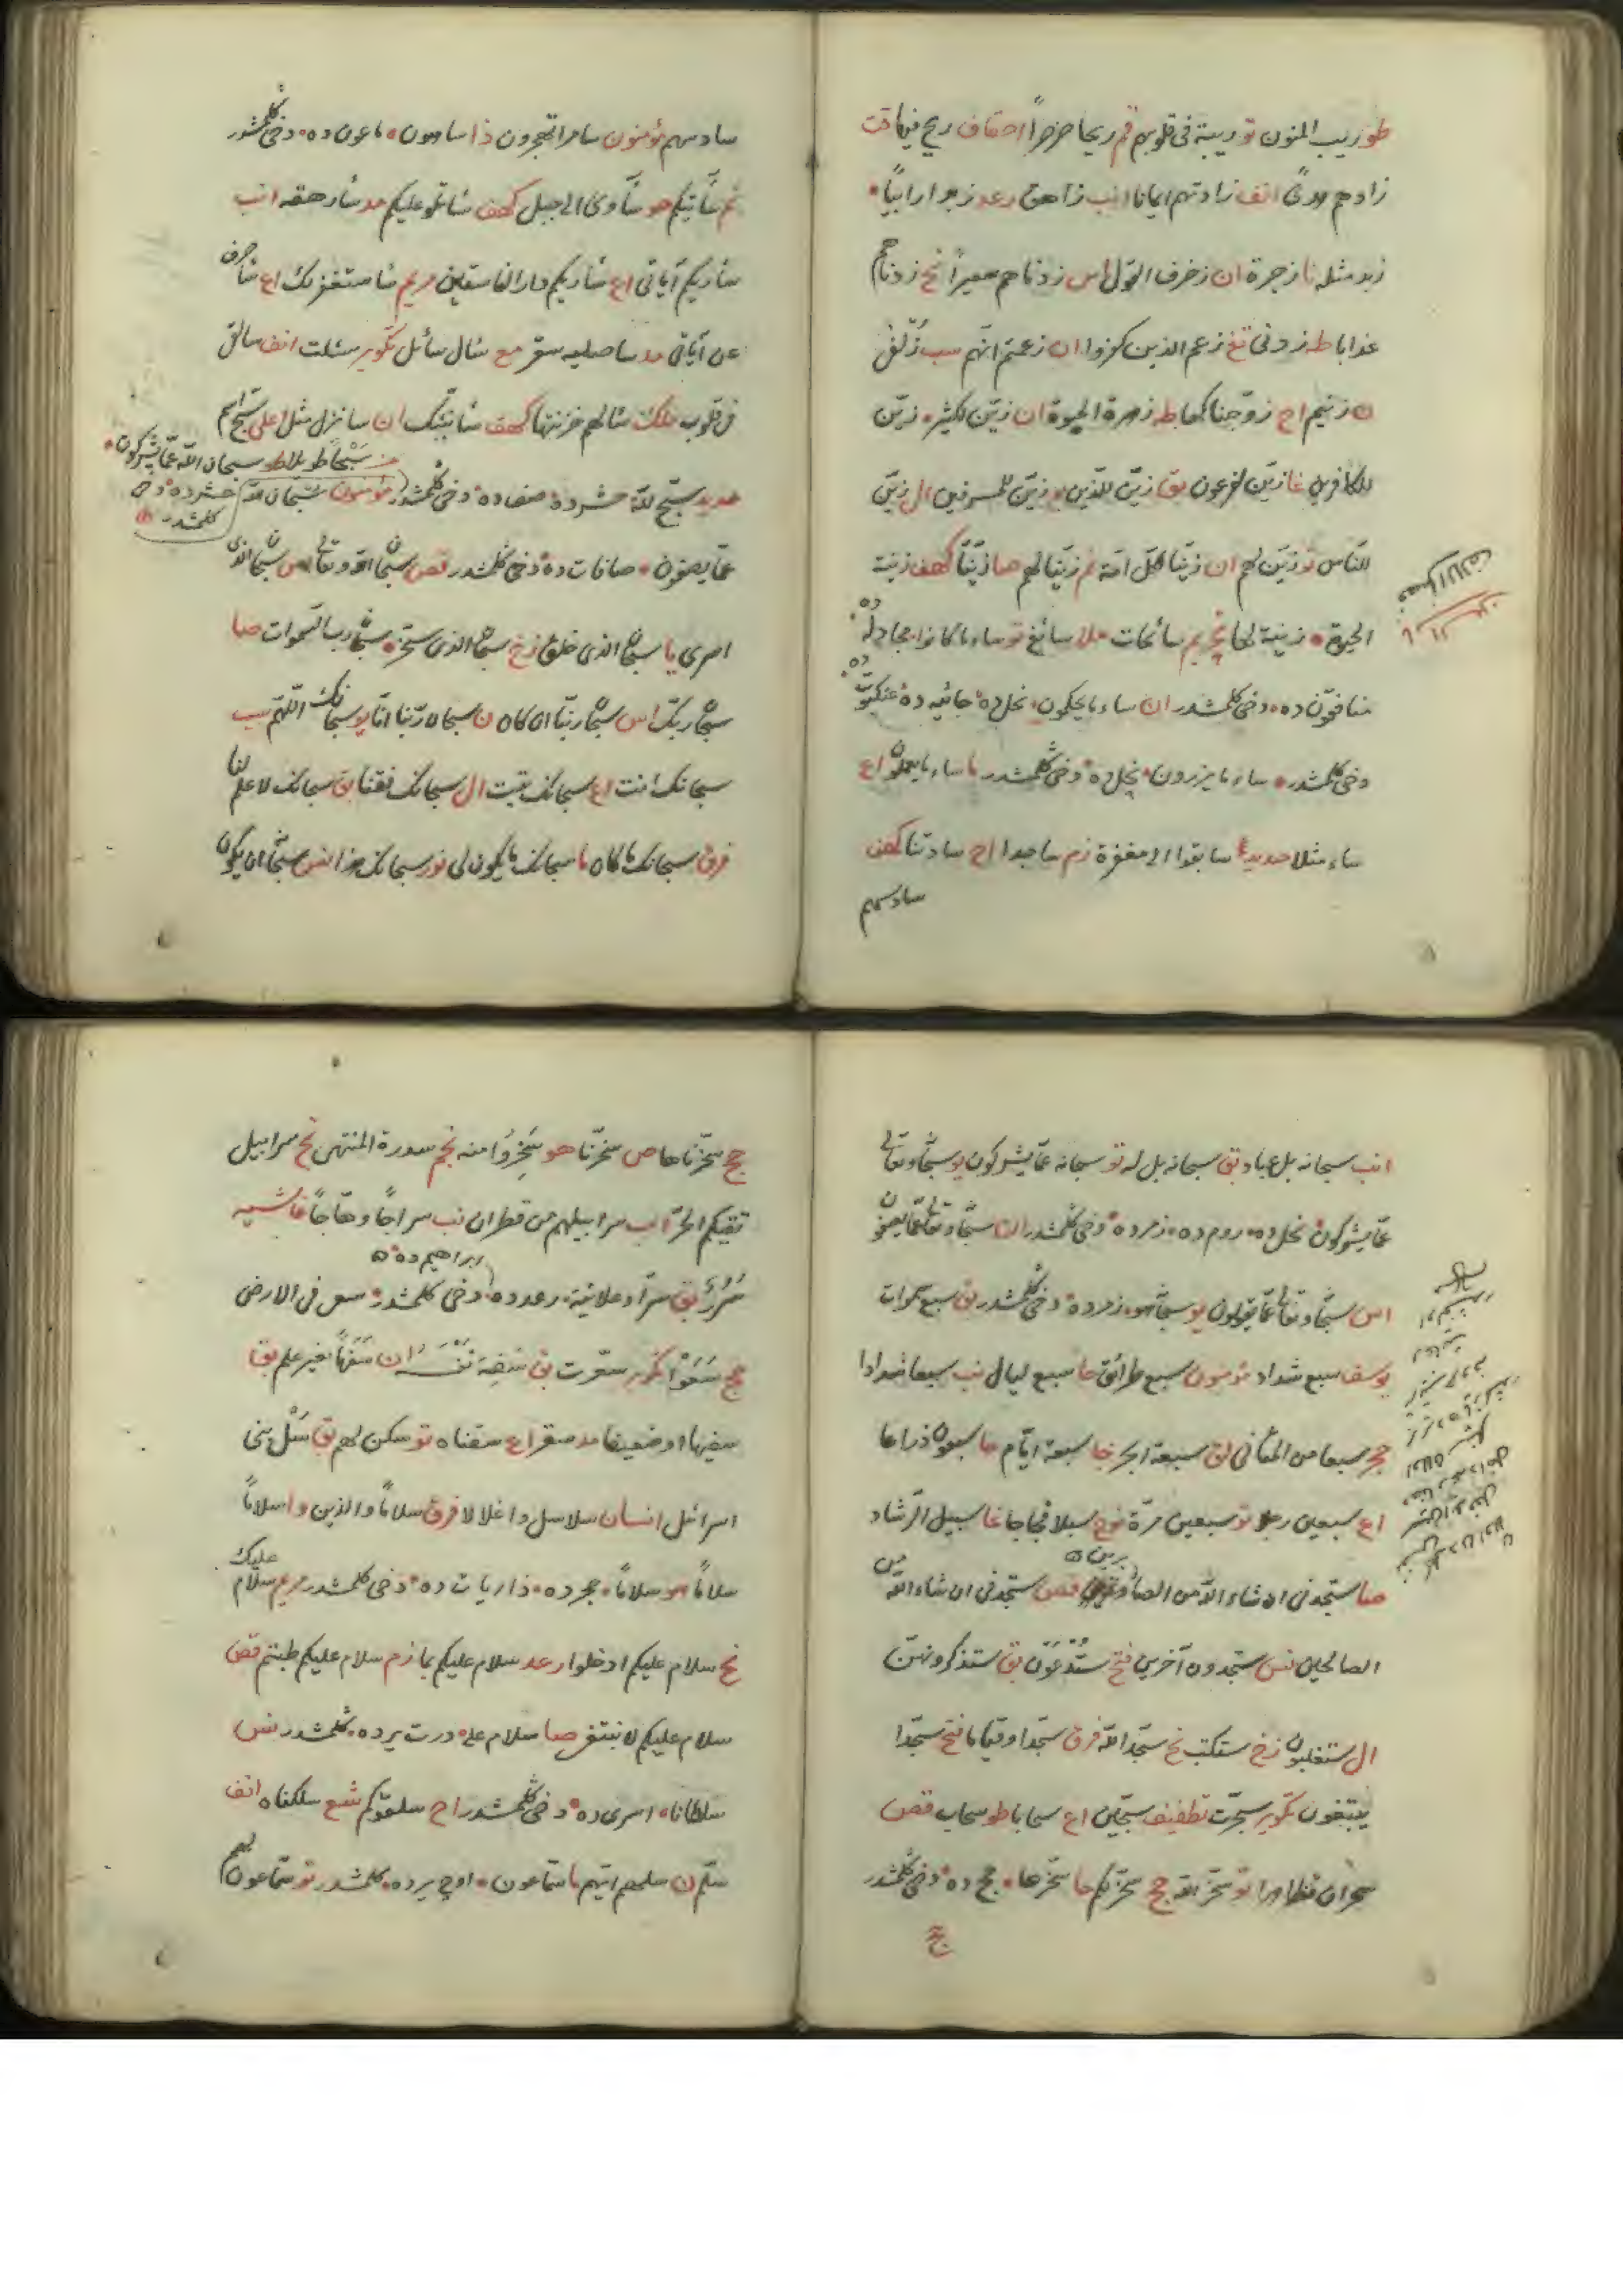 طور ريب المنون تو ريبة في قلوبهم قم ريحا صرصراً احقاف ريح فيها قت
زادهم هدىً انف زادتهم ايمانا انب زاهق رعد زبدا رابياً
زبد مثله نا زجرة ان زخرف القول اس زدناهم سعيراً نح زدناهم
عذابا طه زدني تغ زعم الذين كفروا ان زعمتم انهم سب زلفى
ن زنيم اح زوّجناكها طه زهرة الحيوة ان زيّن لكثير زيّن
للكافرين غا زيّن لفرعون بق زيّن للذين يو زيّن للمسرفين ال زيّن
للناس تو زيّن لهم ان زيّنا لكل امة نم زيّنا لهم صا زيّنا كهف زينة
الحيوة زينة لها تحريم سائحات ملا سائغ تو ساء ما كانوا مجادله ده
منافقون ده دخى كلمشدر ان ساء ما يحكمون نحل ده جاثيه ده عنكبوت ده
دخى كلمشدر ساء ما يزرون نحل ده دخى كلمشدر ما ساء ما يعملون اع
ساء مثلا حديد سابقوا الى مغفرة زم ساجدا اح سادتنا كهف
سادسهم
سادسهم مؤمنون سامرا تهجرون ذا ساهون ماعون ده دخى كلمشدر
نم سآتيكم هو سآوى الى جبل كهف سأتلو عليكم مد سأرهقه انب
سأريكم آياتي اع سأريكم دار الفاسقين مريم سأستغفر لك اع سأصرف
عن آياتي مد سأصليه سقر مع سأل سائل تكوير سئلت انف سالقى
في قلوب ملك سألهم خزنتها كهف سأنبئك ان سأنزل مثل اعلى سبّح اسم
حديد سبّح لله حشر ده صف ده دخى كلمشدر مؤمنون سبحان الله
سبحا طويلا طور سبحان الله عمّا يشركون
حشر ده دخى كلمشدر
عمّا يصفون صافات ده دخى كلمشدر قص سبحان الله وتعالى اس سبحان الذى
اسرى يا سبحان الذى خلق زخ سبحان الذى سخر سبحان رب السموات صا
سبحان ربك اس سبحان ربنا ان كان ن سبحان ربنا انا يو سبحانك اللهم سب
سبحانك انت اع سبحانك تبت ال سبحانك فقنا بق سبحانك لا علم لنا
فرق سبحانك ما كان ما سبحانك ما يكون لى نور سبحانك هذا نس سبحانه ان يكون
انب سبحانه بل عباد بق سبحانه بل له تو سبحانه عمّا يشركون يو سبحانه وتعالى
عمّا يشركون نحل ده روم ده زمر ده دخى كلمشدر ان سبحانه وتعالى عمّا يصفون
اس سبحانه وتعالى عمّا يقولون يو سبحانه هو زمر ده دخى كلمشدر بق سبع سموات
يوسف سبع شداد مؤمنون سبع طرائق حا سبع ليال نب سبعا شدادا
حجر سبعا من المثاني لق سبعة ابحر حا سبعة ايّام حا سبعون ذراعا
اع سبعين رجلا تو سبعين مرّة نوح سبلا فجاجا غا سبيل الرشاد
صا ستجدني ان شاء الله من الصابرين قص ستجدني ان شاء الله من
الصالحين نس ستجدون آخرين فتح ستدعون بق ستذكرونهن
ال ستغلبون زخ ستكتب نح سجّدا لله فرق سجّدا وقياما فتح سجّدا
يبتغون تكوير سجّرت تطفيف سجّين اع سحابا طو سحاب قص
سحران تظاهرا تو سخر الله حج سخرلكم حا سخرها حج ده دخى كلمشدر
حج
حج سخّرناها ص سخّرنا هو سخروا منه نجم سدرة المنتهى نح سرابيل
تقيكم الحرّ اب سرابيلهم من قطران نب سراجاً وهّاجاً غاشيه
سرر بق سرّاً وعلانية رعد ده ابراهيم ده دخى كلمشدر سعى فى الارض
حج سعوا تكوير سعّرت بق سفه نفسه ان سفهاً بغير علم بق
سفيها او ضعيفا مد سقر اع سقناه تو سكن لهم بق سل بنى
اسرائيل انسان سلاسل واغلالا فرق سلاماً والذين وا سلاماً
سلاماً هو سلاماً حجر ده ذاريات ده دخى كلمشدر مريم سلام عليك
نح سلام عليكم ادخلوا رعد سلام عليكم بما زم سلام عليكم طبتم قص
سلام عليكم لا نبتغى صا سلام على درت يرده كلمشدر نس
سلطانا اسرى ده دخى كلمشدر اح سلقوكم شع سلكناه انف
سلّم ن سلهم ايّهم ما سمّاعون اوچ يرده كلمشدر تو سمّاعون لهم